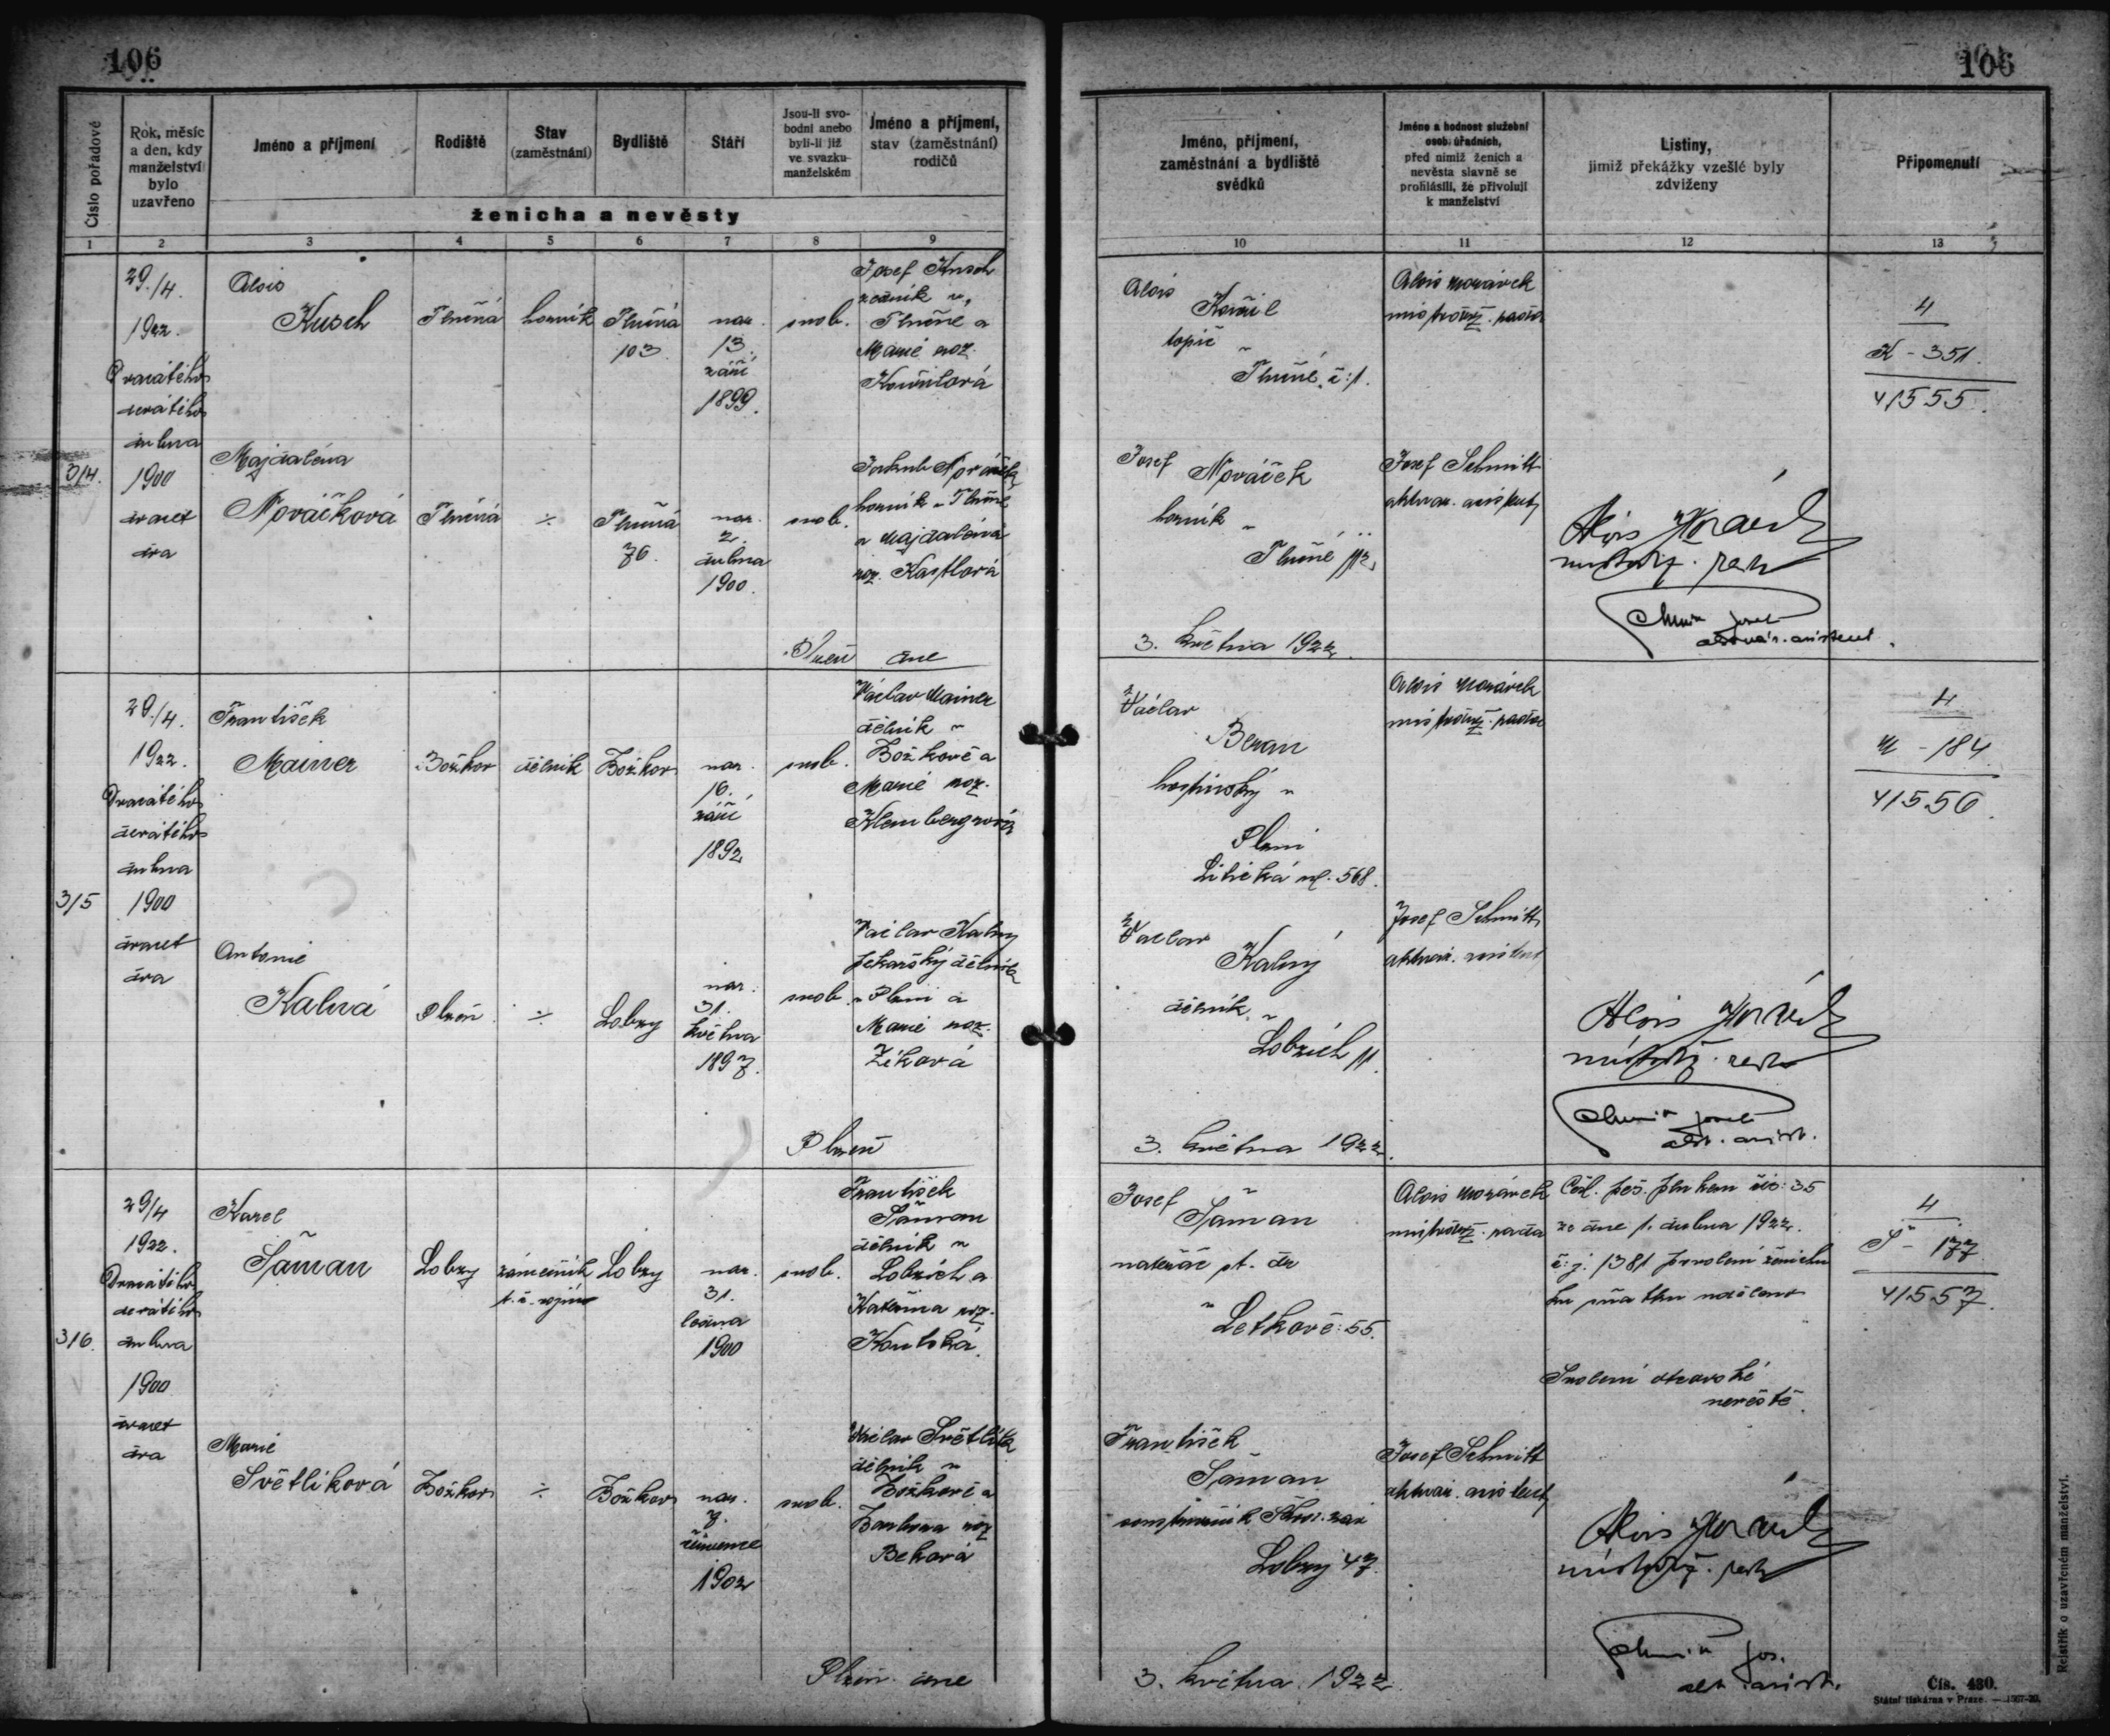 106
106
Číslo pořadové
Rok, měsíc
a den, kdy
manželství
bylo
uzavřeno
Jméno a příjmení
Rodiště
Stav
(zaměstnání)
Bydliště
Stáří
Jsou-li svo-
bodni anebo
byli-li již
ve svazku
manželském
Jméno a příjmení,
stav (zaměstnání)
rodičů
ženicha a nevěsty
Jméno, příjmení,
zaměstnání a bydliště
svědků
Jméno a hodnost služební
osob úředních,
před nimiž ženich a
nevěsta slavně se
prohlásili, že přivolují
k manželství
Listiny,
jimiž překážky vzešlé byly
zdviženy
Připomenutí
1 2 3 4 5 6 7 8 9 10 11 12 13
314.
29./4.
1922.
Dvacátého
devátého
dubna
1900
dvacet
dva
Alois
Kusch
Tlučná
horník
Tlučná
103.
nar.
13.
září
1899.
svob.
Josef Kusch
v
Tlučné a
Marie roz.
Majdaléna
Nováčková
Tlučná
÷
Tlučná
76.
nar.
2.
dubna
1900.
svob.
Jakub Nováček
horník v Tlučné
a Majdaléna
roz. Kastlová
Plzeň dne
Alois
topič
v
Tlučné č. 1.
Josef
Nováček
horník
v
Tlučné
3. května 1922.
Alois Morávek
místodrž. rada
Josef Schmitt
aktuár. asistent
Alois Morávek
místodrž. rada
Josef
aktuár. asistent.
4
K - 351.
41555.
315
29./4.
1922.
Dvacátého
devátého
dubna
1900
dvacet
dva
František
Mainer
Božkov
dělník
Božkov
nar.
16.
září
1892
svob.
Václav Mainer
dělník v
Božkově a
Marie roz.
Antonie
Kalná
Plzeň
÷
Lobzy
nar.
31.
května
1897.
svob.
Václav Kalný
pekařský dělník
v Plzni a
Marie roz.
Žiková
Plzeň
Václav
Beran
hostinský v
Plzni
Litická ul. 568.
Václav
Kalný
dělník
v
Lobzích 11.
3. května 1922.
Alois Morávek
místodrž. rada
Josef Schmitt
aktuár. asistent
Alois Morávek
místodrž. rada
Josef
akt. asist.
4
M - 184
41556.
316.
29/4
1922.
Dvacátého
devátého
dubna
1900
dvacet
dva
Karel
Šaman
Lobzy
zámečník
t. č. vojín
Lobzy
nar.
31.
ledna
1900
svob.
František
Šaman
dělník v
Lobzích a
Kateřina roz.
Koutská.
Marie
Světlíková
Božkov
÷
Božkov
nar.
7.
července
1902
svob.
Václav Světlík
dělník v
Božkově a
Barbora roz
Beková
Plzeň dne
Josef
Šaman
natěrač st. dr
v
Letkově: 55.
František
Šaman
Lobzy 47.
3. května 1922.
Alois Morávek
místodrž. rada
Josef Schmitt
aktuár. asistent
Čsl. peš. plukem čís: 35
ze dne 1. dubna 1922.
č: j: 1381 povolení ženichu
ku sňatku uděleno
Svolení otcovské
nevěstě.
Alois Morávek
místodrž. rada
Jos.
akt. asist.
4
Š - 177.
41557.
Rejstřík o uzavřeném manželství.
Čís. 430.
Státní tiskárna v Praze.